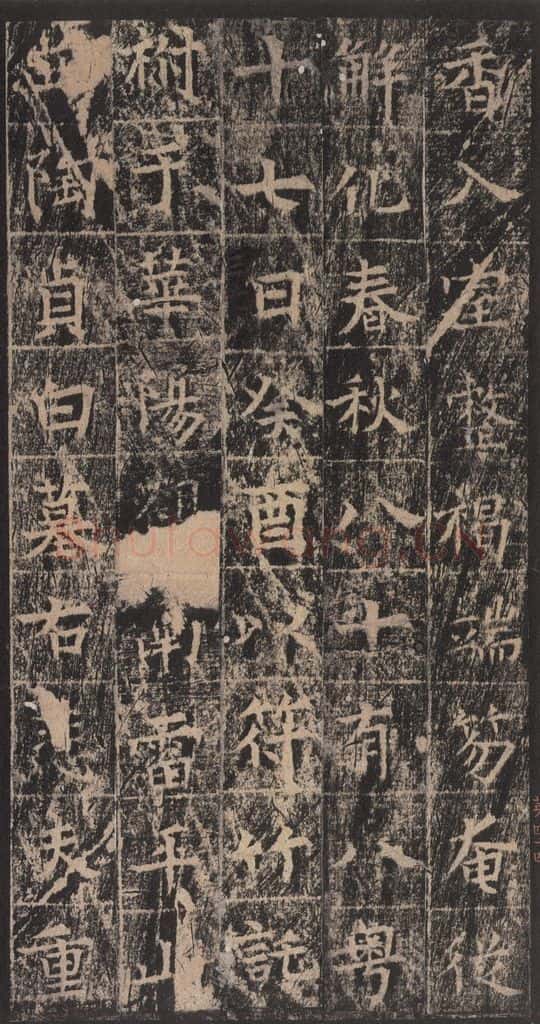 香入室整褐端笏奄從
解化春秋八十有八粤
十七日癸酉以符竹託
祔于華陽雷平山
陶貞白墓右悲夫重